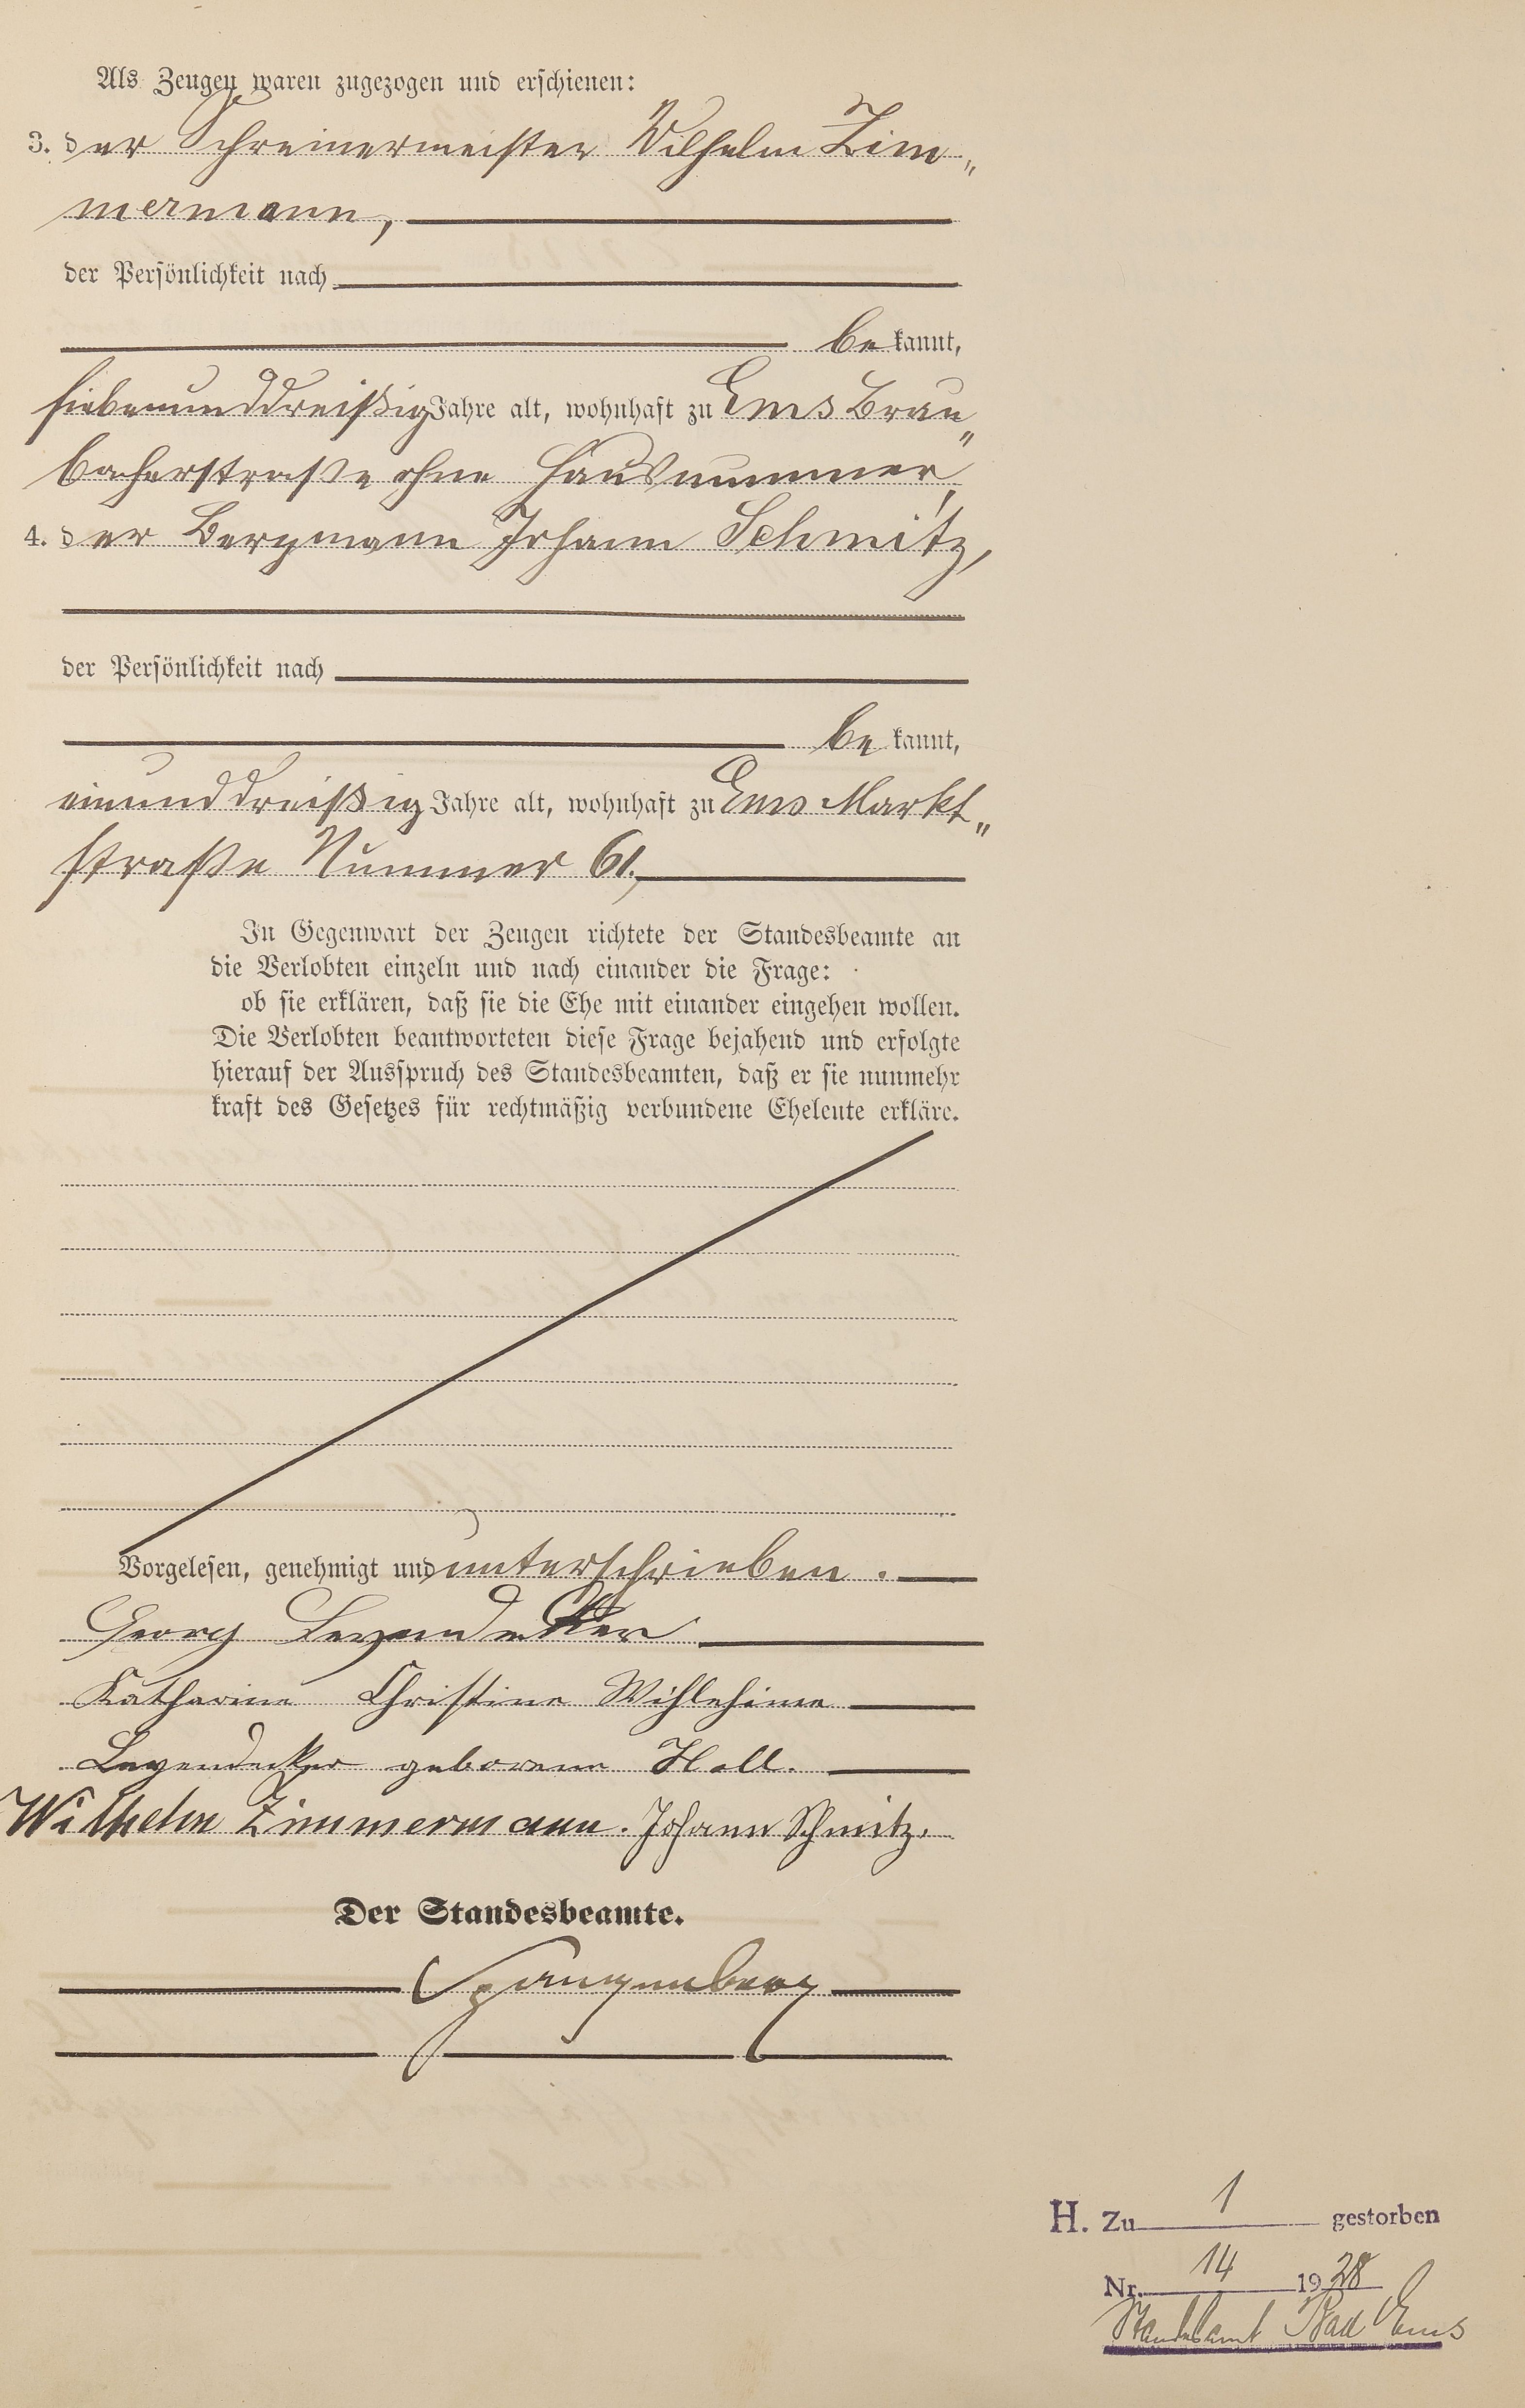 Als Zeugen waren zugezogen und erschienen:
3. der Schreinermeister Wilhelm Zim„
mermann,
der Persönlichkeit nach
be kannt,
siebenunddreißig Jahre alt, wohnhaft zu Ems Brau„
bacherstraße ohne Hausnummer,
4. der Bergmann Johann Schmitz,
der Persönlichkeit nach
be kannt,
einunddreißig Jahre alt, wohnhaft zu Ems Markt„
straße Nummer 61.
In Gegenwart der Zeugen richtete der Standesbeamte an
die Verlobten einzeln und nach einander die Frage:
ob sie erklären, daß sie die Ehe mit einander eingehen wollen.
Die Verlobten beantworteten diese Frage bejahend und erfolgte
hierauf der Ausspruch des Standesbeamten, daß er sie nunmehr
kraft des Gesetzes für rechtmäßig verbundene Eheleute erkläre.
Vorgelesen, genehmigt und unterschrieben.
Georg Leyendecker
Katharina Christine Wihlehime
Leyendecker geborene Holl.
Wilhelm Zimmermann. Johann Schmitz.
Der Standesbeamte.
Spangenberg
H. Zu 1 gestorben
Nr. 14 1928
Standesamt Bad Ems